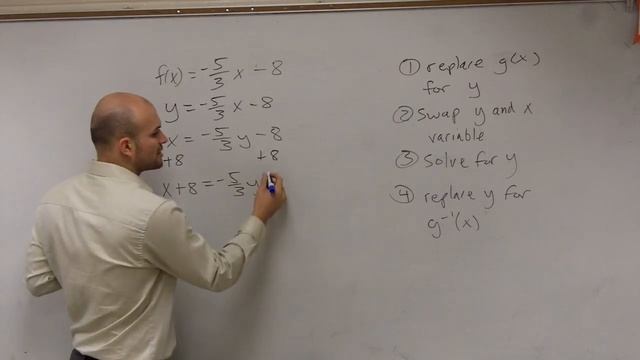 f(x) = -5/3 x - 8
y = -5/3 x - 8
x = -5/3 y - 8
+8 +8
x + 8 = -5/3 y
① replace g(x)
for y
② Swap y and x
variable
③ Solve for y
④ replace y for
g⁻¹(x)